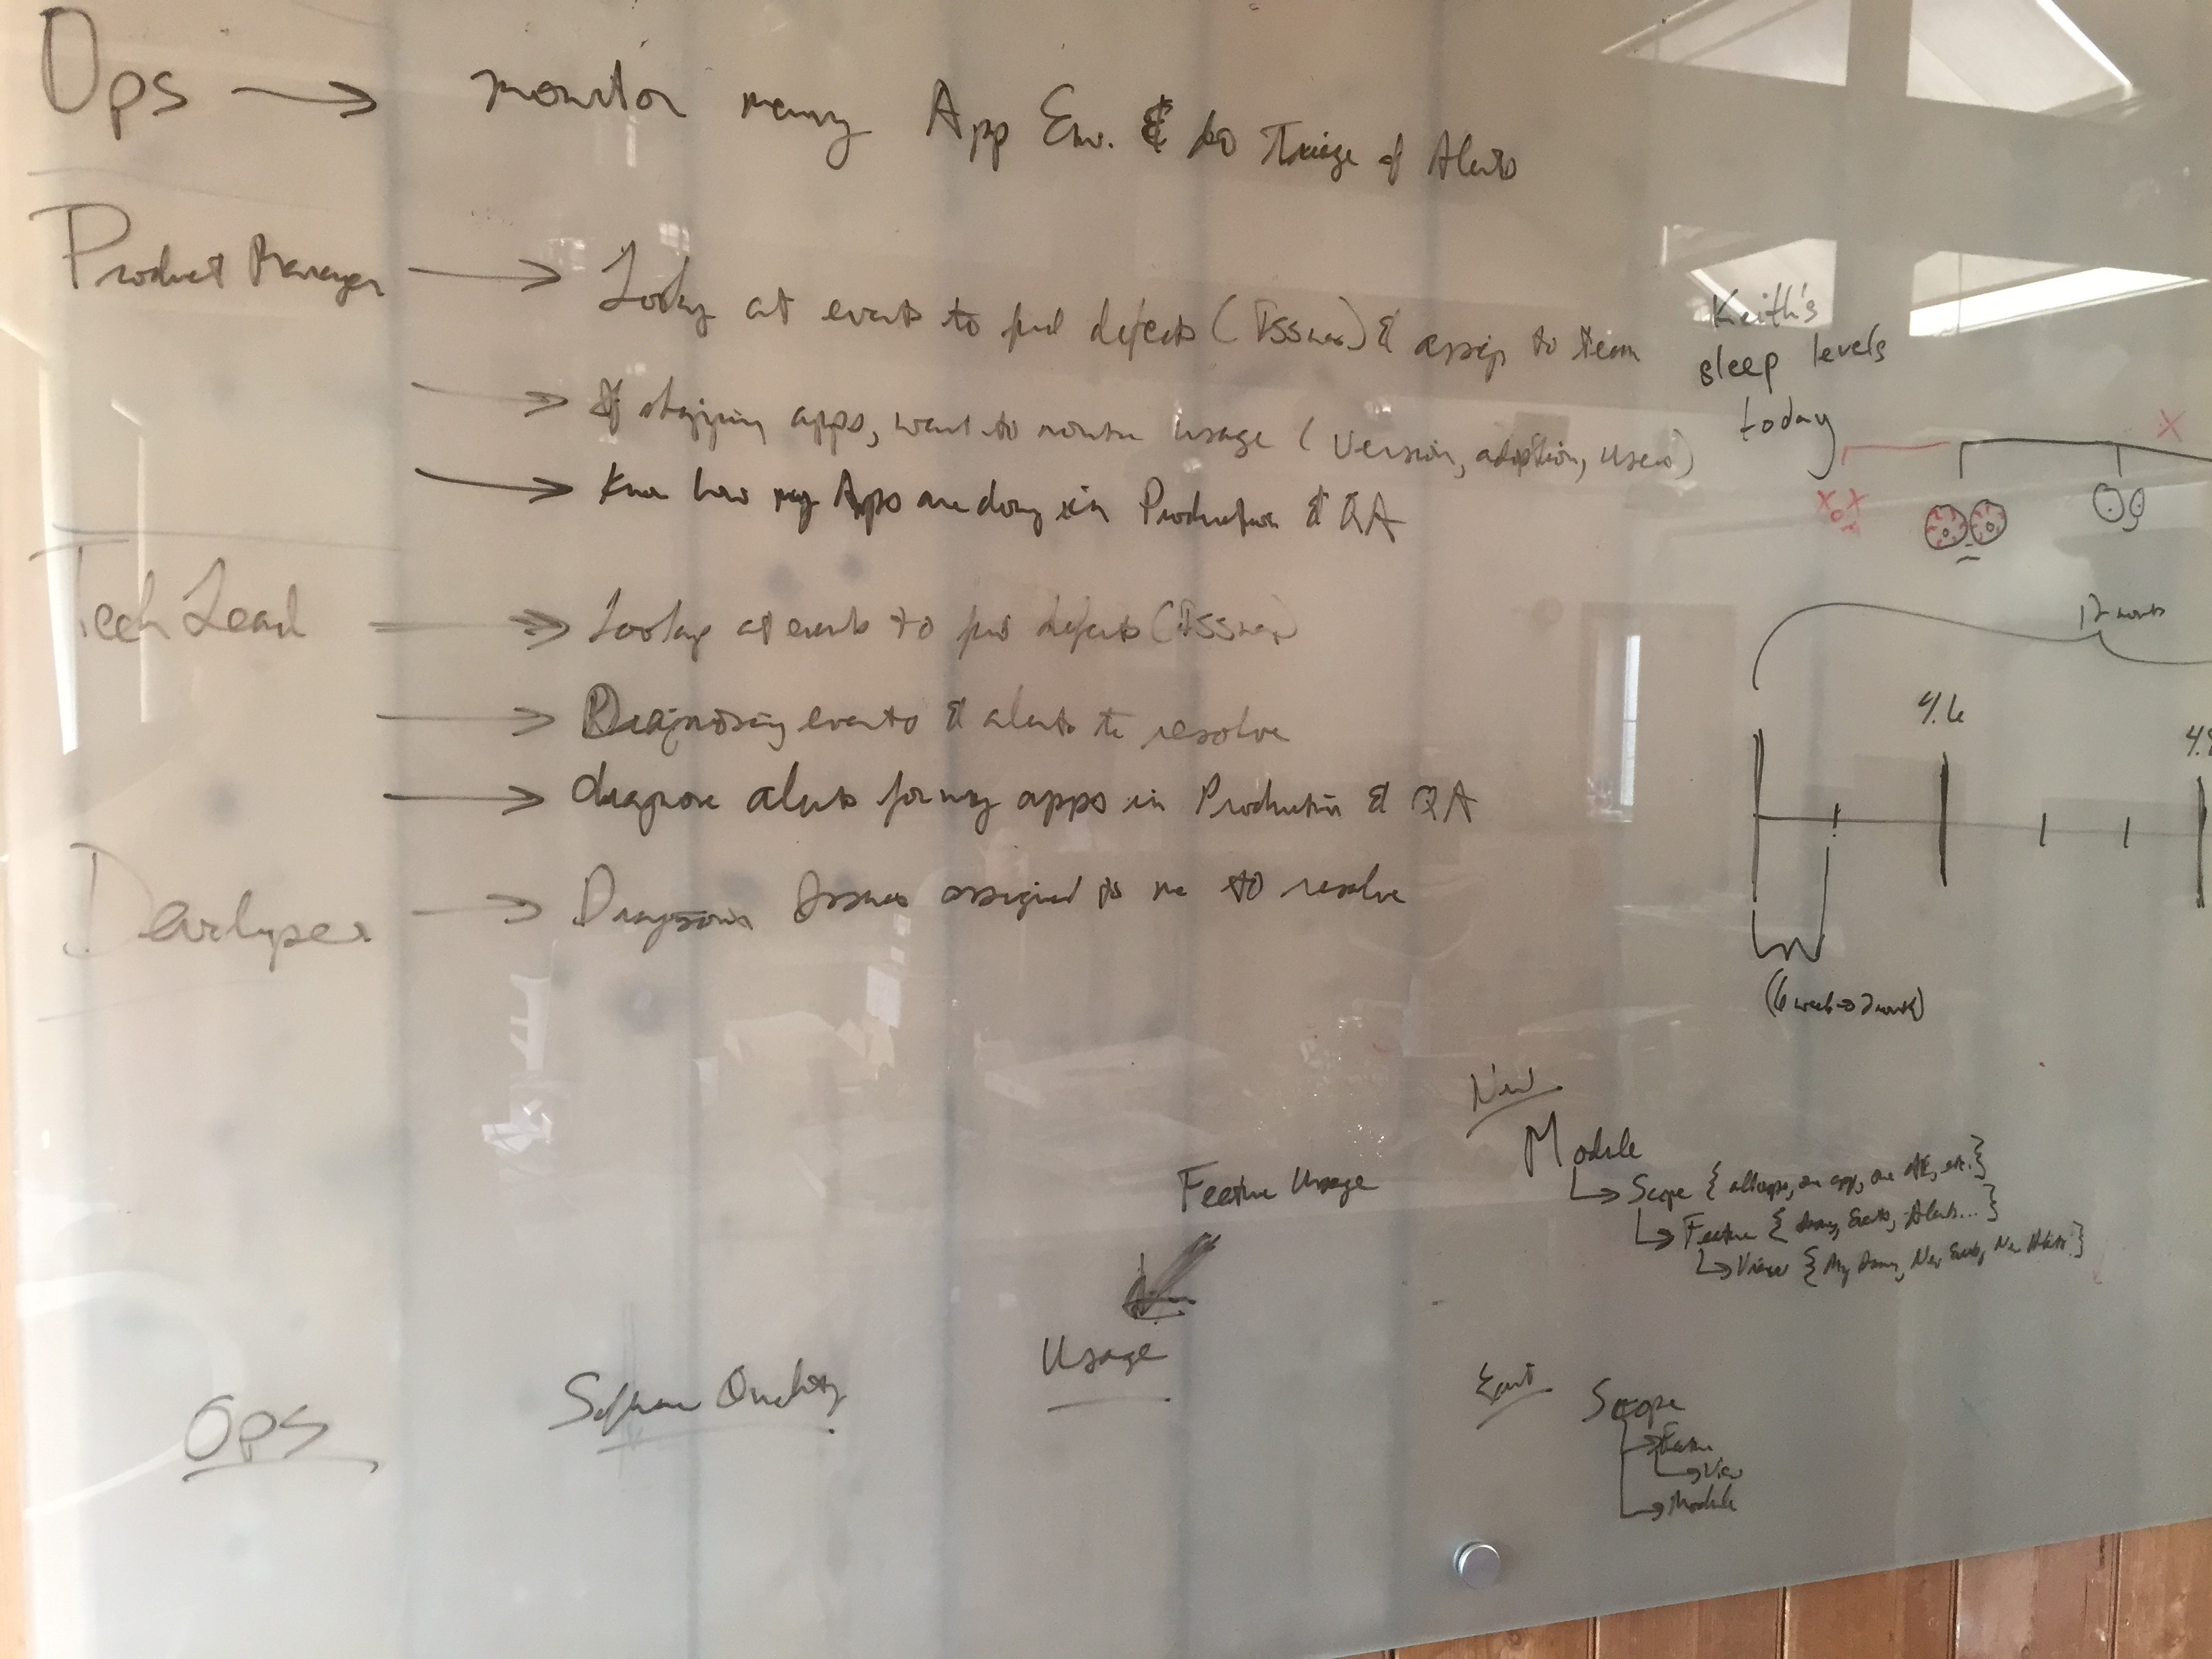 Ops → monitor many App Env. & do Triage of Alerts
Product Manager → Looking at events to find defects (Issues) & assign to team
→ If shipping apps, want to monitor usage (Version, adoption, users)
→ Know how my Apps are doing in Production & QA
Tech Lead → Looking at events to find defects (Issues)
→ Diagnosing events & alerts to resolve
→ diagnose alerts for my apps in Production & QA
Developer → Diagnosing Issues assigned to me to resolve
Keith's
sleep levels
today
12 months
4.6
(6 week → 2 month)
New
Module
Scope { all apps, one app, one AE, etc. }
Feature { Issues, Events, Alerts... }
View { My Issues, New Events, New Alerts }
Feature Usage
Usage
Ops
Software Quality
Scope
Feature
View
Module